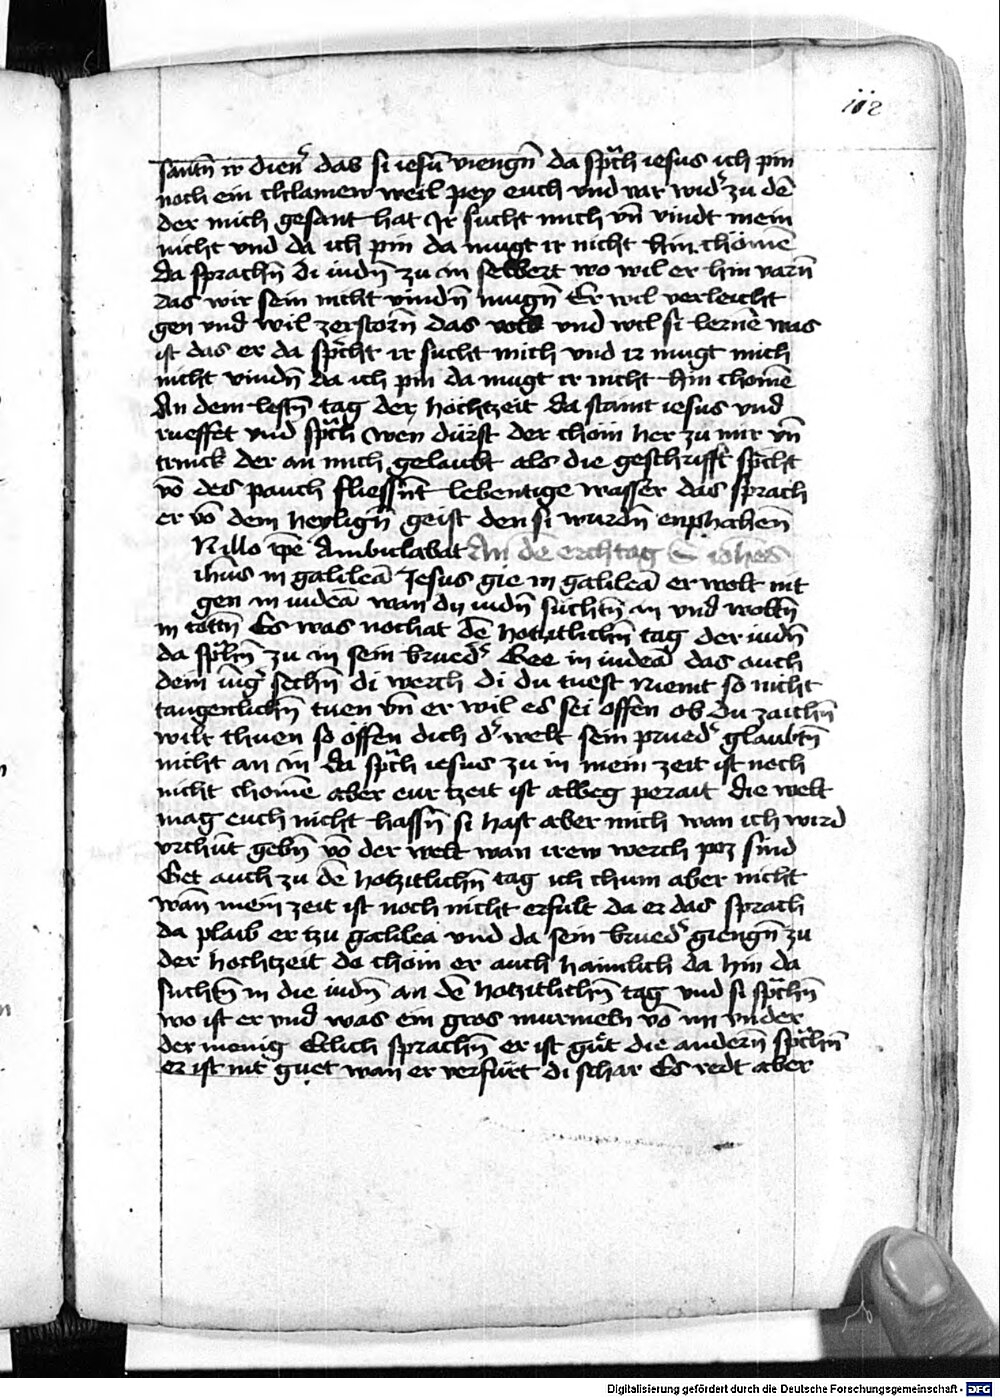 112
santn̄ ir dien͛ das si iesū viengn̄ da sp̄ch iesus ich pin
noch ein chlainew weil pey euch vnd var wid͛ zu dē
der mich gesant hat Ir sucht mich vn̄ vindt mein
nicht vnd da ich pin da mugt ir nicht hin chömē
da sprachn̄ di iudn̄ zu in selbert wo wil er hin varn̄
das wir sein nicht vindn̄ mugn̄ Er wil verleicht
gen vnd wil zerstorn̄ das volk vnd wil si lernē was
ist das er da sp̄cht ir sucht mich vnd ir mugt mich
nicht vindn̄ da ich pin da mugt ir nicht hin chomē
An dem lestn̄ tag der hochtzeit da staint iesus vnd
rueffet vnd sp̄ch wen dürst der chöm her zu mir vn̄
trinck der an mich gelaubt als die geschrifft sp̄cht
vō des pauch fliessn̄t lebentige wasser das sprach
er vō dem heylign̄ geist den si wurdn̄ enphahen̄
N illo tp̄e Ambulabat An dē erchtag S iohēs
ihūs in galileā Jesus gie in galileā er wolt nit
gen in iudeā wan dy iudn̄ suchtn̄ in vnd woltn̄
in tottn̄ Es was nochat dē hotzitlichn̄ tag der iudn̄
da sp̄chn̄ zu in sein brued͛ Gee in iudeā das auch
dein iūg͛ sechn̄ di werch di du tuest Niemt so nicht
taugenlichn̄ tuen vn̄ er wil es sei offen ob du zaichn̄
wilt thuen so offen dich d͛ welt sein prued͛ glaubtn̄
nicht an in da sp̄ch iesus zu in mein zeit ist noch
nicht chomē aber eur tzeit ist albeg perait die welt
mag euch nicht hassn̄ si hast aber mich wan ich wird
vrchūt gebn̄ vō der welt wan irew werch poz sind
Get auch zu dē hotzitlichn̄ tag ich chum aber nicht
wan̄ mein zeit ist noch nicht erfult da er das sprach
da plaib er tzu galilea vnd da sein brued͛ giengn̄ zu
der hochtzeit do chöm er auch haimlich da hin da
suchtn̄ in die iudn̄ an dē hotzitlichn̄ tag vnd si sp̄chn̄
wo ist er vnd was ein gros murmeln vō im vnder
der menig Etlich sprachn̄ er ist gůt die andern̄ sp̄chn̄
er ist nit guet wan er verfürt di schar Es redt aber
Digitalisierung gefördert durch die Deutsche Forschungsgemeinschaft - DFG